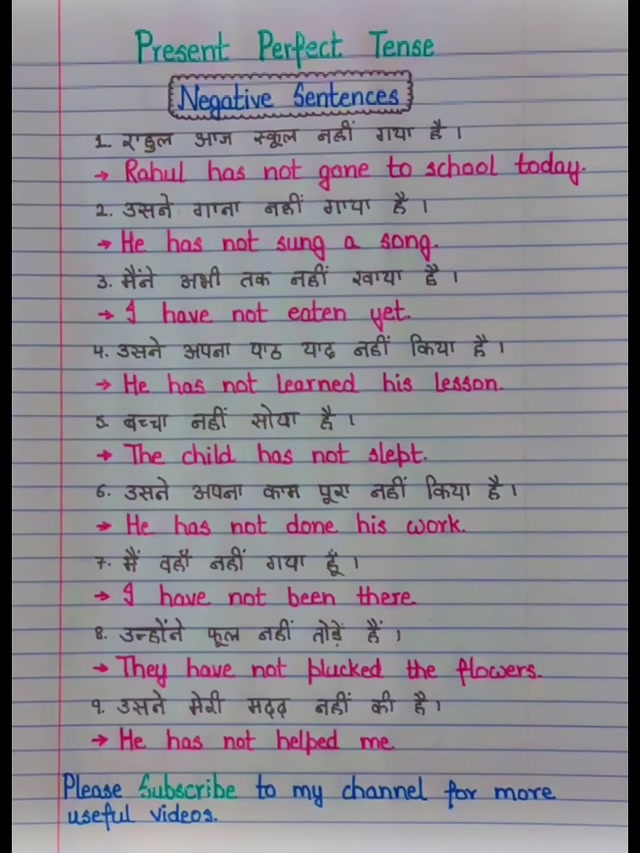 Present Perfect Tense
Negative Sentences
1. राहुल आज स्कूल नहीं गया है।
→ Rahul has not gone to school today.
2. उसने गाना नहीं गाया है।
→ He has not sung a song.
3. मैंने अभी तक नहीं खाया है।
→ I have not eaten yet.
4. उसने अपना पाठ याद नहीं किया है।
→ He has not learned his lesson.
5. बच्चा नहीं सोया है।
→ The child has not slept.
6. उसने अपना काम पूरा नहीं किया है।
→ He has not done his work.
7. मैं वहाँ नहीं गया हूँ।
→ I have not been there
8. उन्होंने फूल नहीं तोड़ें हैं।
→ They have not plucked the flowers.
9. उसने मेरी मदद नहीं की है।
→ He has not helped me
Please Subscribe to my channel for more
useful videos.